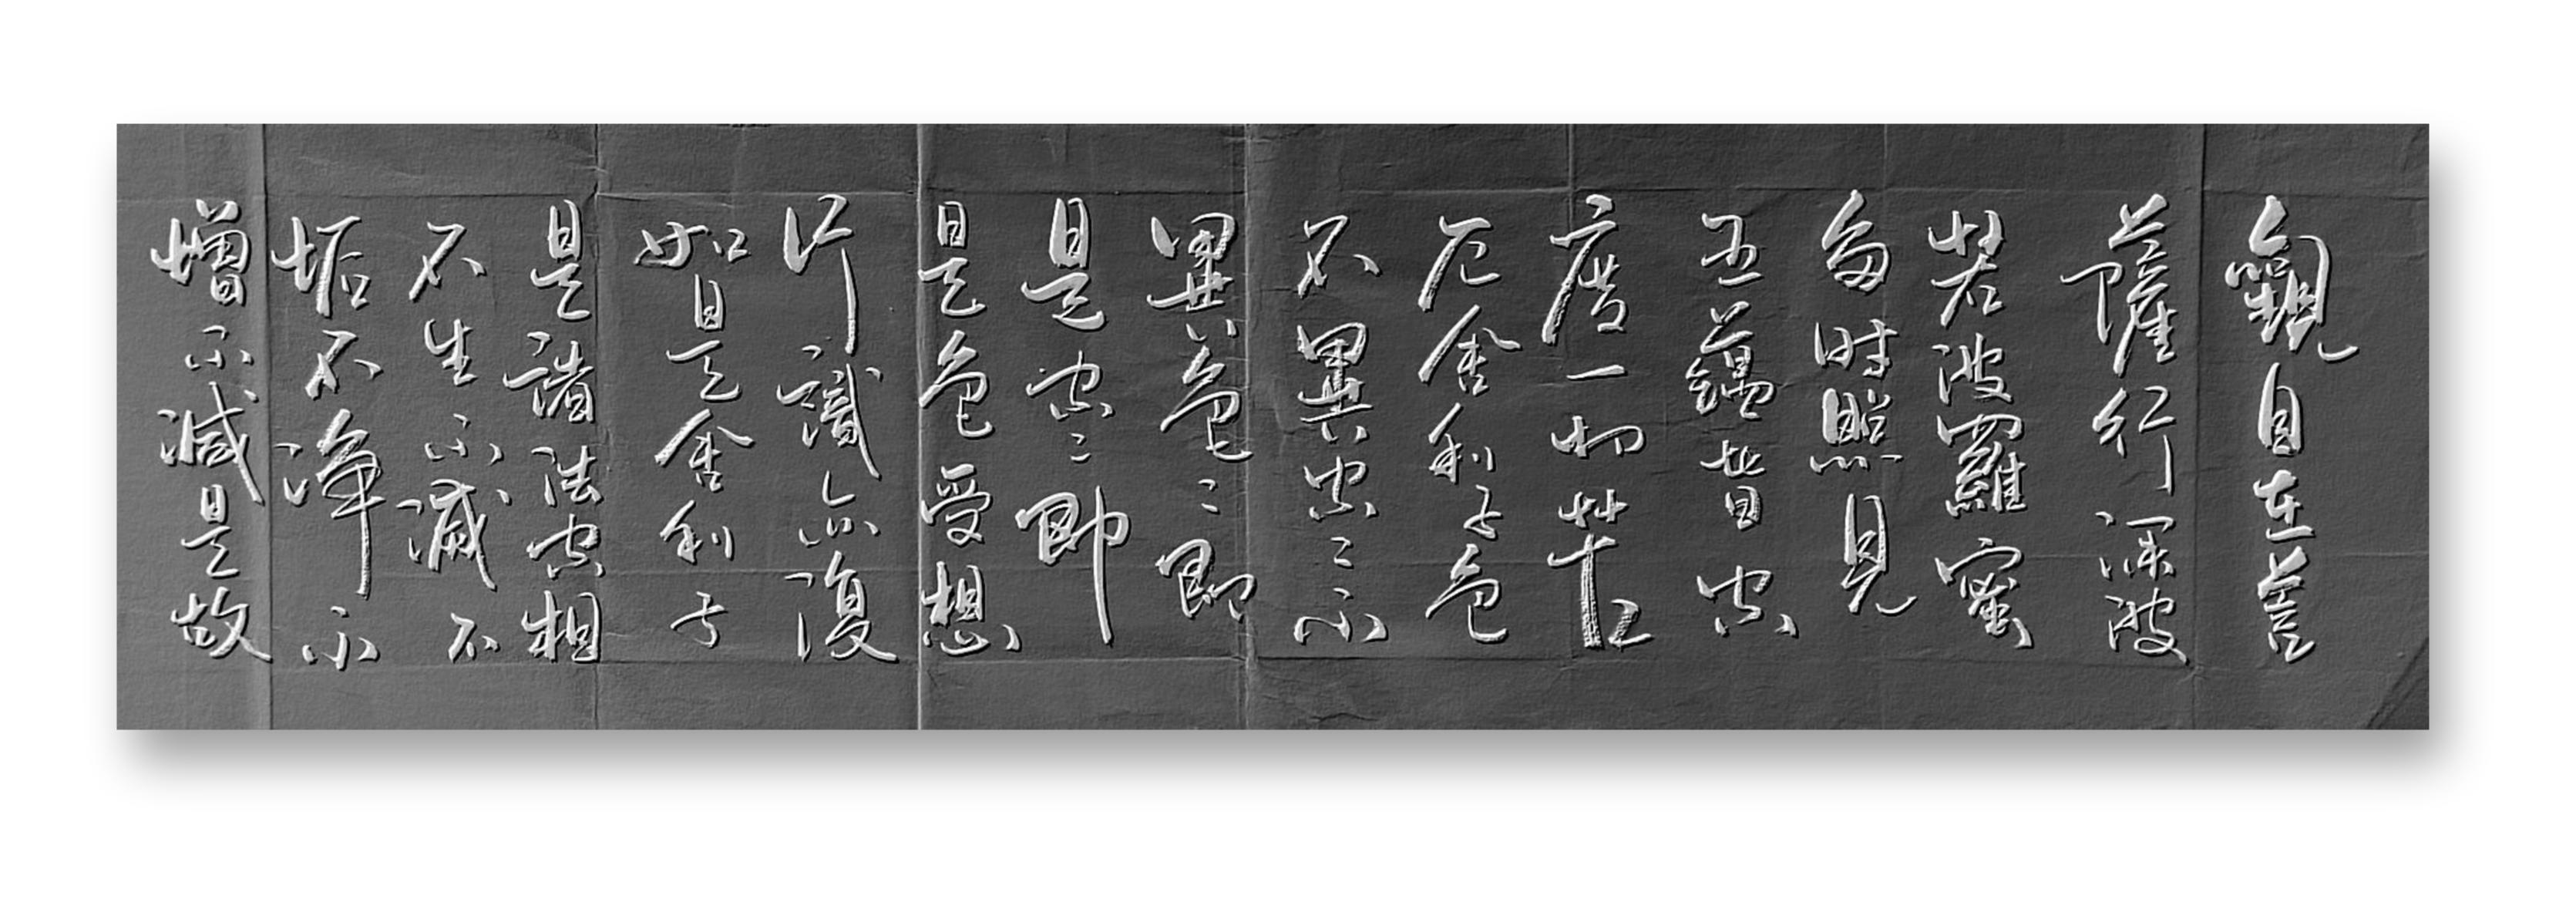 觀自在菩
薩行深般
若波羅蜜
多時照見
五蘊皆空
度一切苦
厄舍利子色
不異空々不
異色々即
是空々即
是色受想
行識亦復
如是舍利子
是諸法空相
不生不滅不
垢不淨不
增不減是故